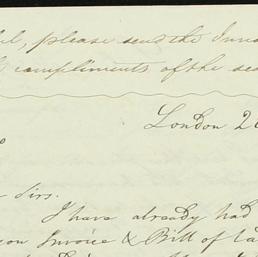 please send the Invoi
compliments of the sea
London 2
Sirs.
I have already had
Invoice & Bill of La